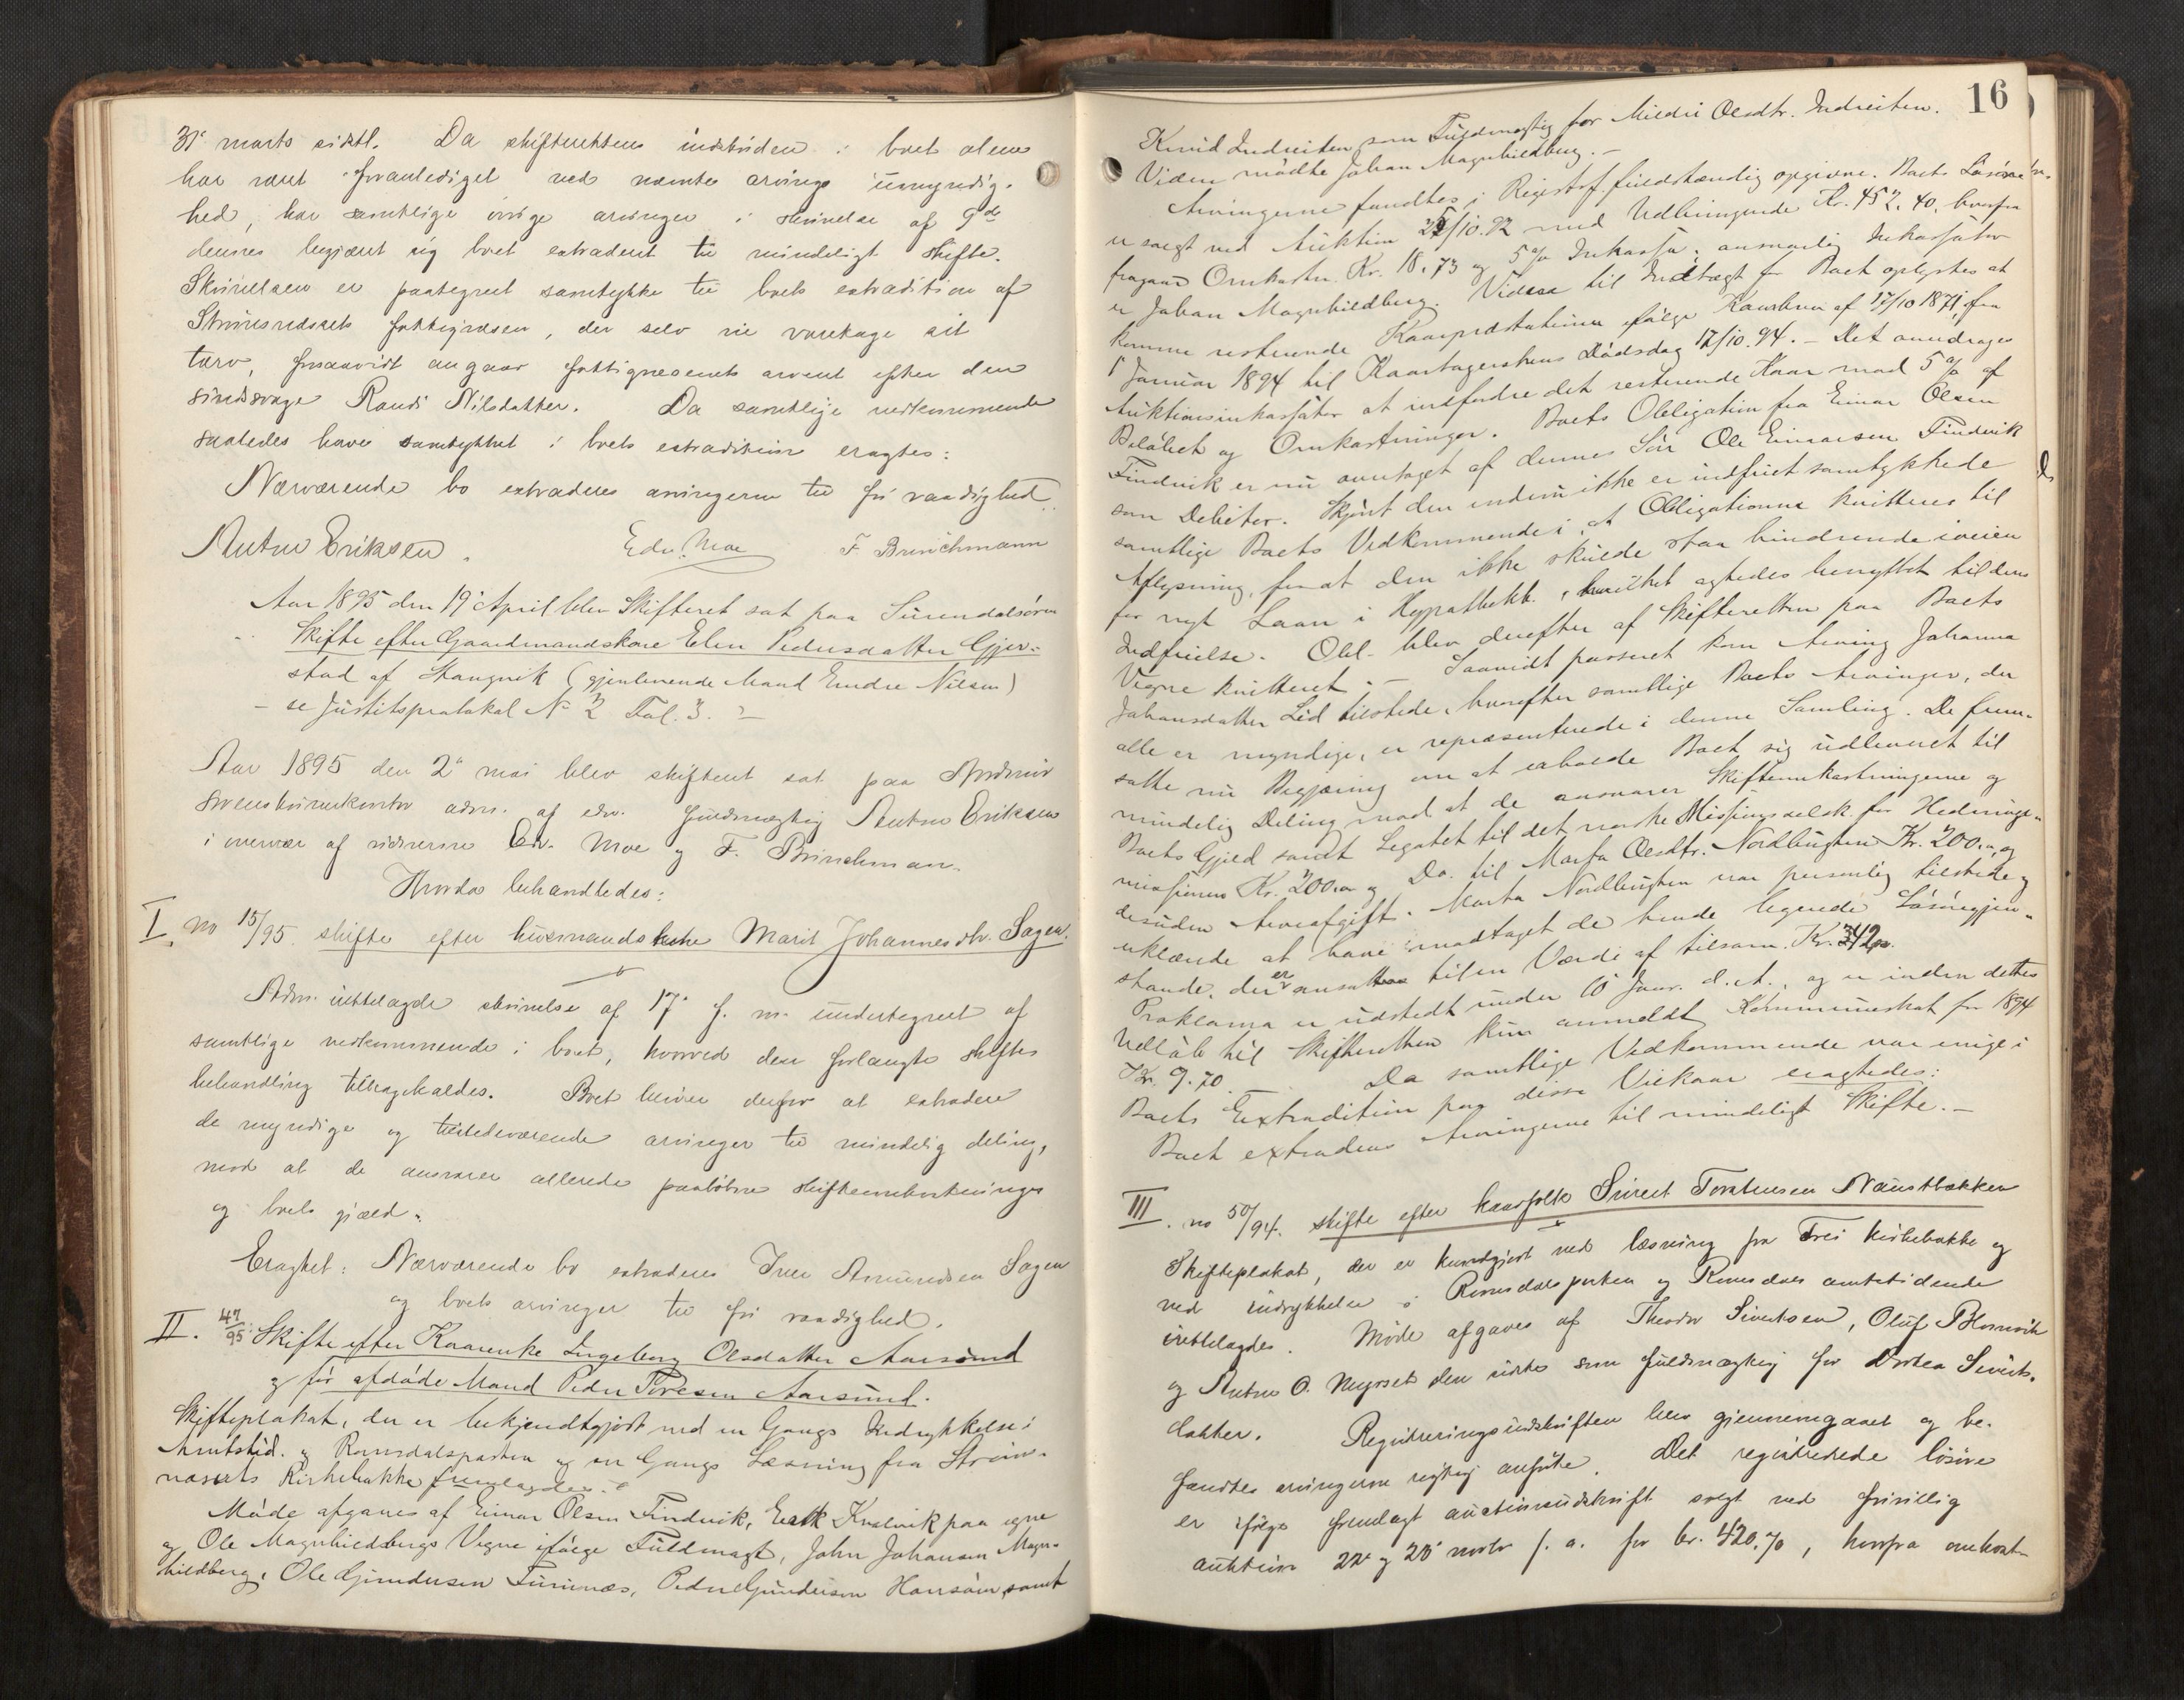 31' marts sidstl. Da skifterettens indskriden i boet alene
har været foranlediget ved nævnte arvings umyndig-
hed, har samtlige øvrige arvinger i skrivelse af 9de
dennes begjært sig boet extraderet til mindeligt skifte.
Skrivelsen er paategnet samtykke til boets extradition af
Strømsnessets fattigvæsen, der selv vil varetage sit
tarv, forsaavidt angaar fattigvæsenets arveret efter den
sindssvage Randi Nilsdatter. Da samtlige vedkommende
saaledes have samtykket i boets extradition eragtes:
Nærværende bo extraderes arvingerne til fri raadighed.
Anton Eriksen. Edv. Moe F. Brinchmann
Aar 1895 den 19' April blev Skifteret sat paa Surendalsøren
Skifte efter Gaardmandskone Elen Pedersdatter Gjer-
stad af Stangvik (gjenlevende Mand Endre Nilsen)
- se Justitsprotokol No 2 Fol. 3. -
Aar 1895 den 2' mai blev skifteret sat paa Nordmør
sorenskriverkontor adm. af edsv. fuldmægtig Anton Eriksen
i overvær af vidnerne Edv. Moe og F. Brinchmann.
Hvorda behandledes:
I. No 15/95. skifte efter husmandskone Marit Johannesdtr. Sagen.
Adm. fremlagde skrivelse af 17' f. m. undertegnet af
samtlige vedkommende i boet, hvorved den forlangte skifte
behandling tilbagekaldes. Boet bliver derfor at extradere
de myndige og tilstedeværende arvinger til mindelig deling,
mod at de ansvarer allerede paaløbne skifteomkostninger
og boets gjæld.
Eragtet: Nærværende bo extraderes Iver Amundsen Sagen
og boets arvinger til fri raadighed.
II. 47/95: Skifte efter Kaarenke Ingeborg Olsdatter Aarsund
og før afdøde Mand Peder Toresen Aarsund.
Skifteplakat, der er bekjendtgjort ved en Gangs Indrykkelse i
Amtstid. og Romsdalsposten og en Gangs Læsning fra Strøm-
næssets Kirkebakke fremlagdes.
Møde afgaves af Einar Olsen Findvik, Erik Kvalvik paa egne
og Ole Magnhildbergs Vegne ifølge Fuldmagt, John Johansen Magn-
hildberg, Ole Gundersen Furunæs, Peder Gundersen Hansøen, samt
16
Knud Indreiten som Fuldmægtig for Mildri Olsdtr. Indreiten.
Viden mødte Johan Magnhildberg. -
Arvingerne fandtes i Registrf. fuldstændig opgivne. Boets Løsøre
er solgt ved Auktion 25/10.92 med Udbringende Kr. 452.40. hvorfra
fragaar Omkostn. Kr. 18.73 og 5% Inkasso; ansvarlig Inkassator
er Johan Magnhildberg. Videre til Indtægt for Boet oplystes at
komme resterende Kaarpræstationer ifølge Kaarbrev af 17/10 1871, fra
1' Januar 1894 til Kaartagerskens Dødsdag 12/10.94. - Det anmodes
Auktionsinkassator at indfordre det resterende Kaar mod 5% af
Beløbet og Omkostninger. Boets Obligation fra Einar Olsen
Findvik er nu overtaget af dennes Søn Ole Einarsen Findvik
som Debitor. Skjønt den endnu ikke er indfriet samtykkede
samtlige Boets Vedkommende i, at Obligationen kvitteres til
Aflysning, for at den ikke skulde staa hindrende iveien
for nyt Laan i Hypothekb., hvilket agtedes benyttet til dens
Indfrielse. Obl. blev derefter af Skifteretten paa Boets
Vegne kvitteret. - Saavidt passeret kom Arving Johanna
Johansdatter Lid tilstede, hvorefter samtlige Boets Arvinger, der
alle er myndige, er repræsenterede i denne Samling. De frem-
satte nu Begjæring om at erholde Boet sig udleveret til
mindelig Deling mod at de ansvarer Skifteomkostningerne og
Boets Gjæld samt Legatet til det norske Missionsselsk. for Hedninge-
missionen Kr. 200.00 og Do. til Marta Olsdtr. Nordbugten Kr. 200.00, og
desuden Arveafgift. Marta Nordbugten var personlig tilstede og
erklærede at have modtaget de hende legerede Løsøregjen-
stande, der er ansatte til en Værdi af tilsam. Kr. 342.00.
Proklama er udstedt under 10' Janr. d. A., og er inden dettes
Udløb til Skifteretten kun anmeldt Kommuneskat for 1894
Kr. 9.70. Da samtlige Vedkommende var enige i
Boets Extradition paa disse Vilkaar eragtedes:
Boet extraderes Arvingerne til mindeligt Skifte. -
III. no 50/94. skifte efter kaarfolk Sivert Torstensen Naustbakken
Skifteplakat, der er kundgjort ved læsning fra Frei kirkebakke og
ved indrykkelse i Romsdalsposten og Romsdals amtstidende
fremlagdes. Møde afgaves af Theodor Sivertsen, Oluf Blomvik
og Anton O. Myrset den sidste som fuldmægtig for Dortea Siverts-
datter. Registreringsudskriften blev gjennemgaaet og be-
fandtes arvingerne rigtig anførte. Det registrerede løsøre
er ifølge fremlagt auctionsudskrift solgt ved frivillig
auktion 22' og 23' novbr f. a. for kr. 420.70, hvorfra omkost-